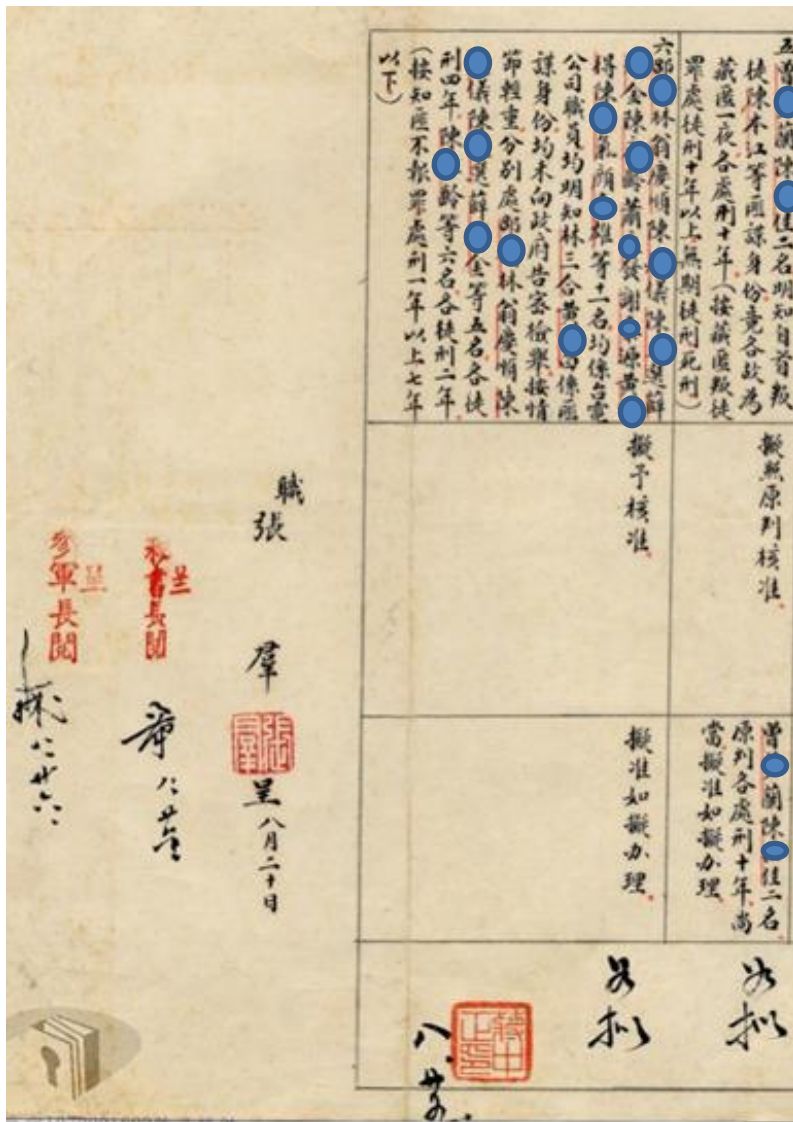 五曾 蘭陳 佳二名明知自首叛
徒陳本江等匪諜身份竟各故為
藏匿一夜各處刑十年(按藏匿叛徒
罪處徒刑十年以上無期徒刑死刑)
擬照原判核准
曾 蘭陳 佳二名
原判各處刑十年尚
當擬准如擬办理
如拟
六鄧 林翁慶順陳 儀陳 選薛
金陳 齡蕭 發謝 源黃
得陳 氣顏 雄等十二名均係台電
公司職員均明知林三合黃 田係匪
諜身份均未向政府告密檢舉按情
節輕重分別處鄧 林翁慶順陳
儀陳 選薛 金等五名各徒
刑四年陳 齡等六名各徒刑二年
(按知匪不報罪處刑一年以上七年
以下)
擬予核准
擬准如擬办理
如拟
蔣中正印
職張 羣
張羣
呈八月二十日
呈
秘書長閱
呈
參軍長閱